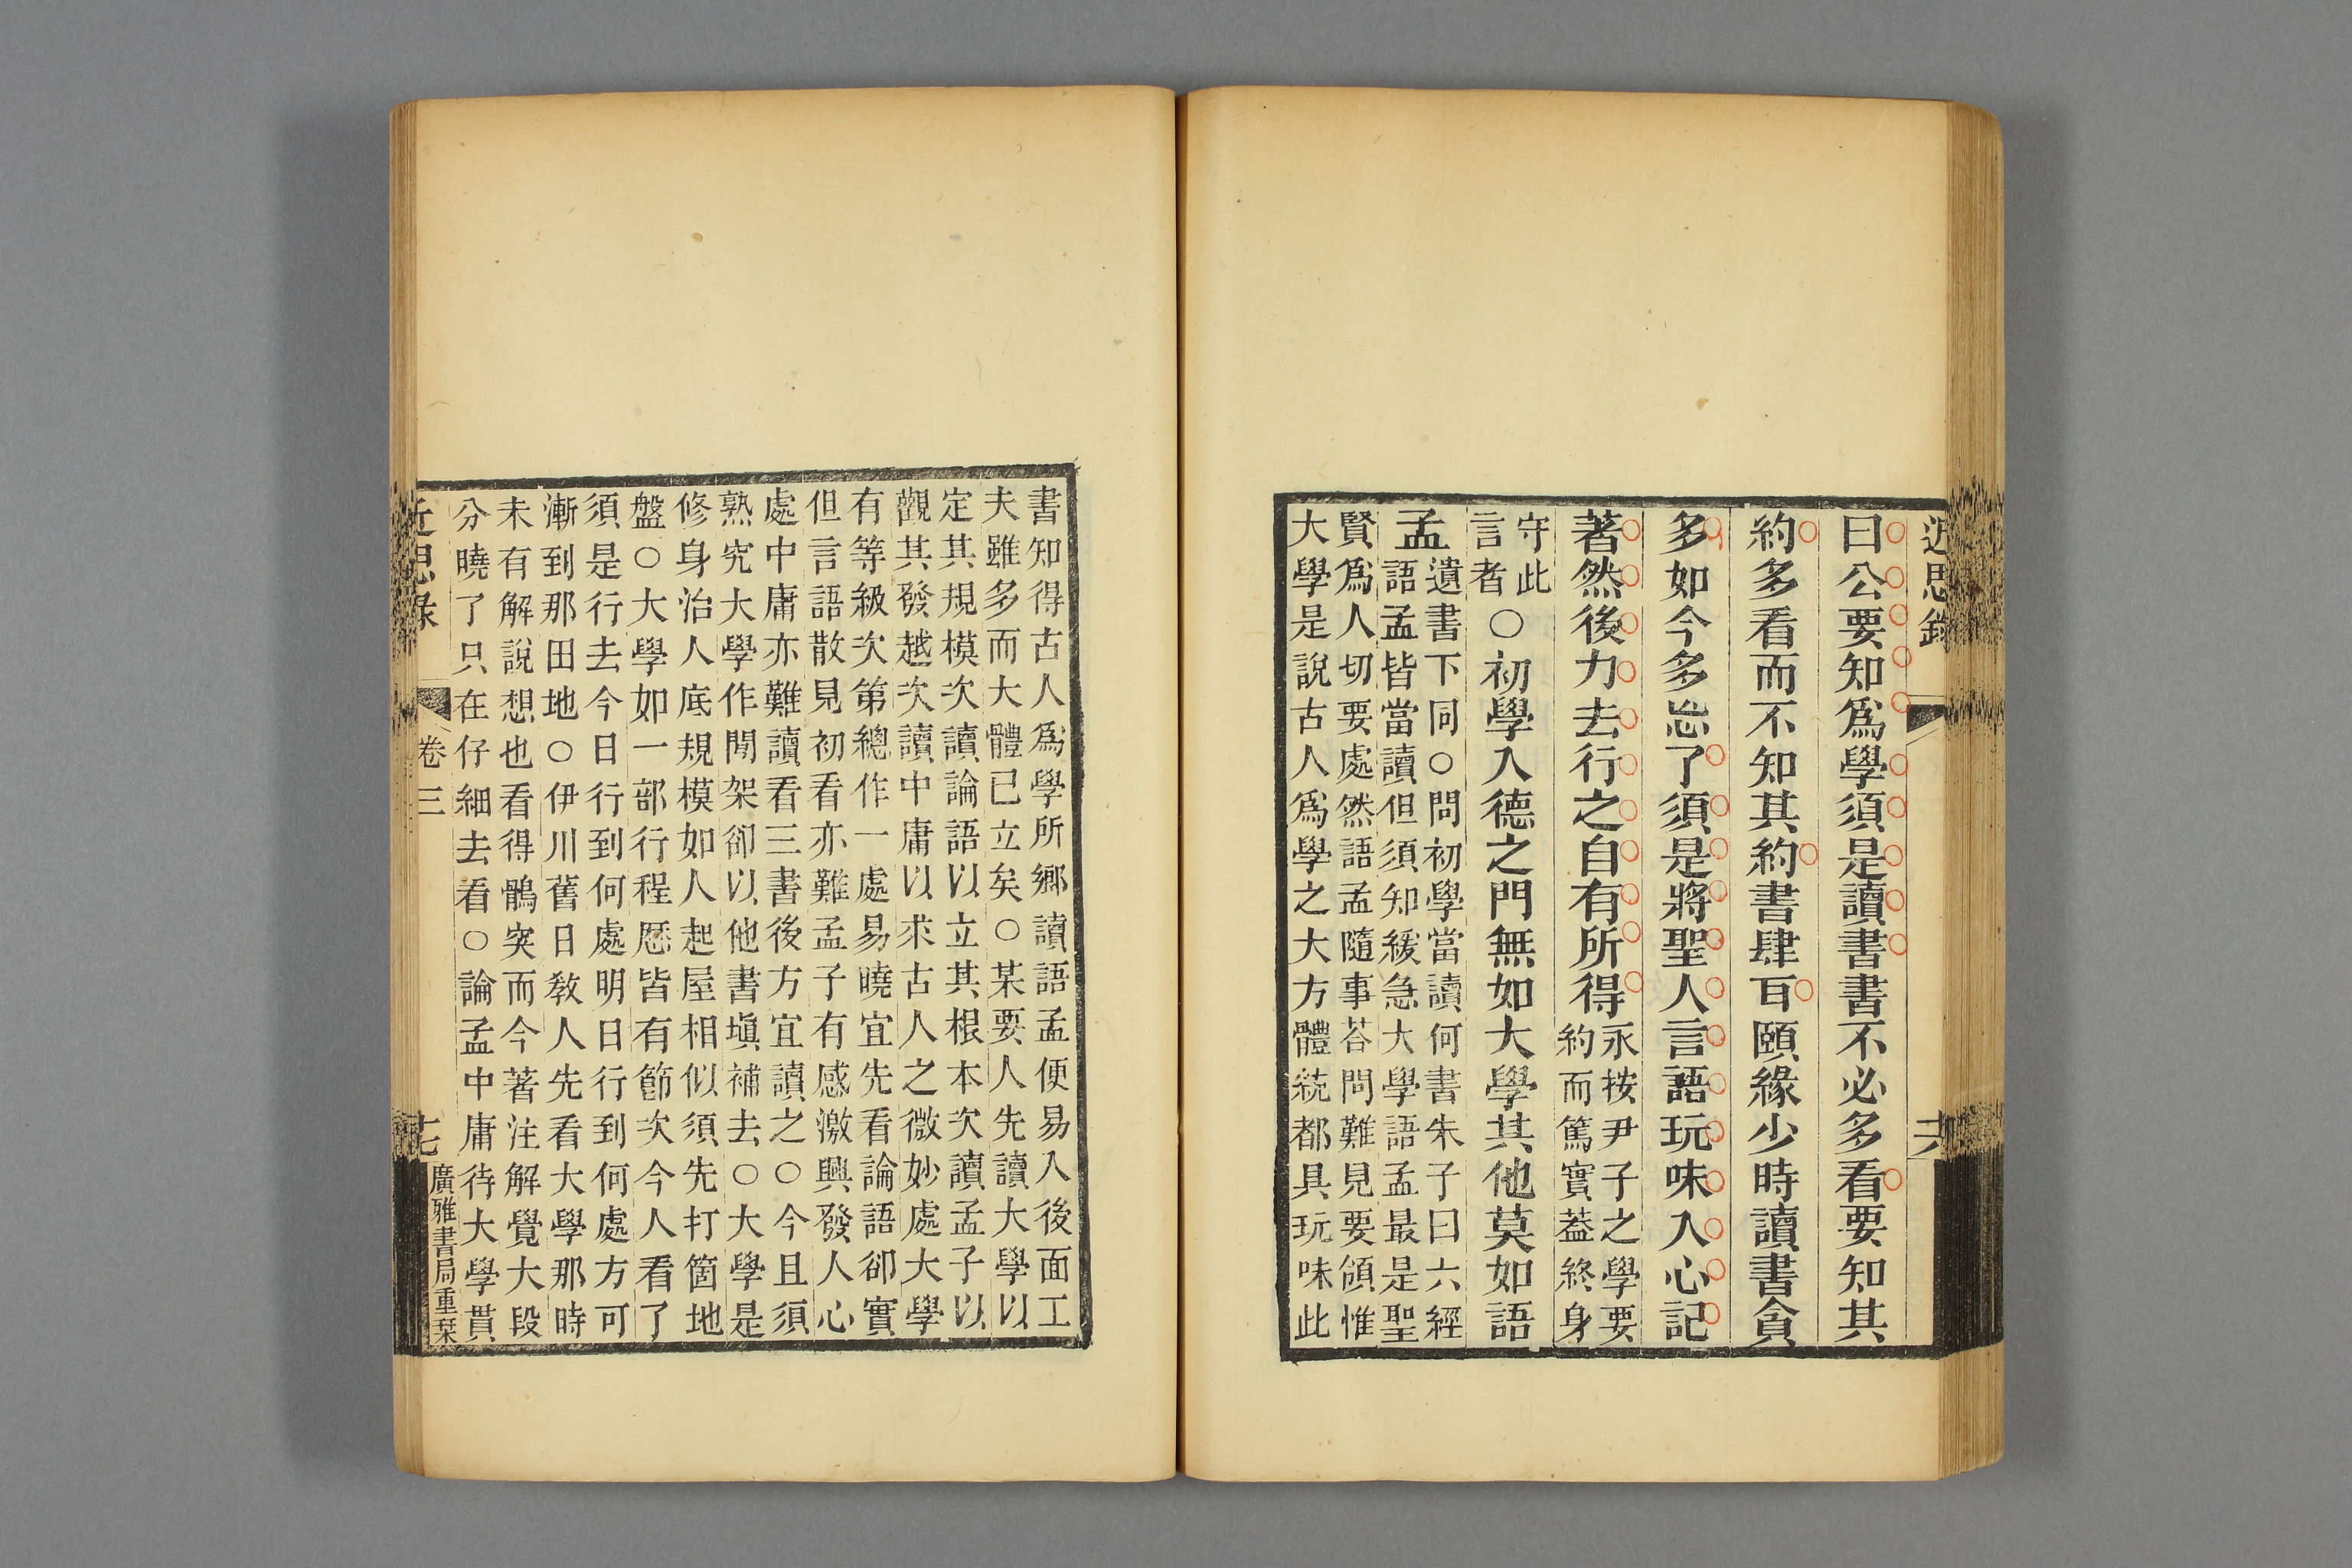 近思錄
十六
曰公要知爲學須是讀書書不必多看要知其
約多看而不知其約書肆耳頤緣少時讀書貪
多如今多忘了須是將聖人言語玩味入心記
著然後力去行之自有所得
永按尹子之學要
約而篤實葢終身
守此
言者
○初學入德之門無如大學其他莫如語
孟
遺書下同○問初學當讀何書朱子曰六經
語孟皆當讀但須知緩急大學語孟最是聖
賢爲人切要處然語孟隨事荅問難見要領惟
大學是說古人爲學之大方體統都具玩味此
書知得古人爲學所鄉讀語孟便易入後面工
夫雖多而大體已立矣○某要人先讀大學以
定其規模次讀論語以立其根本次讀孟子以
觀其發越次讀中庸以求古人之微妙處大學
有等級次第總作一處易曉宜先看論語卻實
但言語散見初看亦難孟子有感激興發人心
處中庸亦難讀看三書後方宜讀之○今且須
熟究大學作閒架卻以他書塡補去○大學是
修身治人底規模如人起屋相似須先打箇地
盤○大學如一部行程歷皆有節次今人看了
須是行去今日行到何處明日行到何處方可
漸到那田地○伊川舊日敎人先看大學那時
未有解說想也看得鶻突而今著注解覺大段
分曉了只在仔細去看○論孟中庸待大學貫
近思錄
卷三
十七
廣雅書局重栞